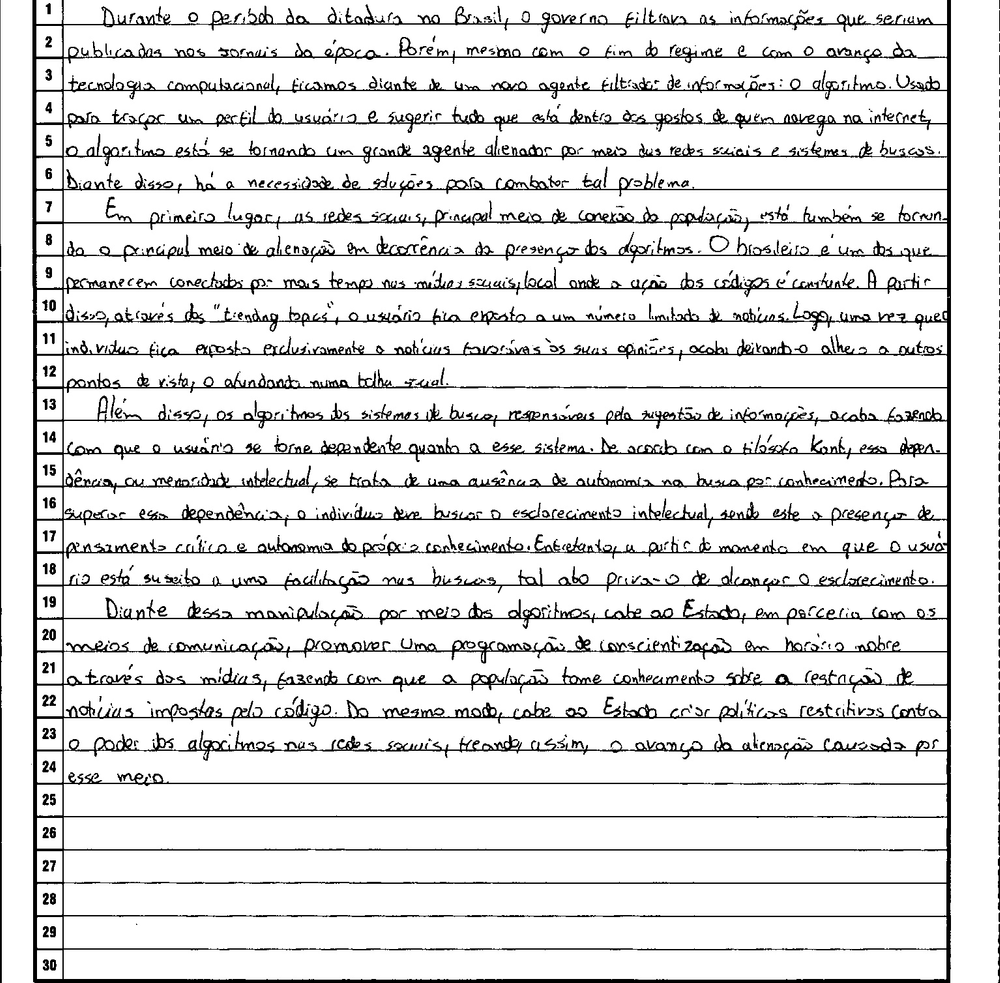 1 Durante o período da ditadura no Brasil, o governo filtrava as informações que seriam
2 publicadas nos jornais da época. Porém, mesmo com o fim do regime e com o avanço da
3 tecnologia computacional, ficamos diante de um novo agente filtrador de informações: o algoritmo. Usado
4 para traçar um perfil do usuário e sugerir tudo que está dentro dos gostos de quem navega na internet,
5 o algoritmo está se tornando um grande agente alienador por meio das redes sociais e sistemas de buscas.
6 Diante disso, há a necessidade de soluções para combater tal problema.
7 Em primeiro lugar, as redes sociais, principal meio de conexão da população, está também se tornan-
8 do o principal meio de alienação em decorrência da presença dos algoritmos. O brasileiro é um dos que
9 permanecem conectados por mais tempo nas mídias sociais, local onde a ação dos códigos é constante. A partir
10 disso, através dos "trending topcs", o usuário fica exposto a um número limitado de notícias. Logo, uma vez que o
11 indivíduo fica exposto exclusivamente a notícias favoráveis às suas opiniões, acaba deixando-o alheio a outros
12 pontos de vista, o afundando numa bolha social.
13 Além disso, os algoritmos dos sistemas de busca, responsáveis pela sugestão de informações, acaba fazendo
14 com que o usuário se torne dependente quanto a esse sistema. De acordo com o filósofo Kant, essa depen-
15 dência, ou menoridade intelectual, se trata de uma ausência de autonomia na busca por conhecimento. Para
16 superar essa dependência, o indivíduo deve buscar o esclarecimento intelectual, sendo este a presença de
17 pensamento crítico e autonomia do próprio conhecimento. Entretanto, a partir do momento em que o usuá-
18 rio está sujeito a uma facilitação nas buscas, tal ato priva-o de alcançar o esclarecimento.
19 Diante dessa manipulação por meio dos algoritmos, cabe ao Estado, em parceria com os
20 meios de comunicação, promover uma programação de conscientização em horário nobre
21 através das mídias, fazendo com que a população tome conhecimento sobre a restrição de
22 notícias impostas pelo código. Do mesmo modo, cabe ao Estado criar políticas restritivas contra
23 o poder dos algoritmos nas redes sociais, freando, assim, o avanço da alienação causada por
24 esse meio.
25
26
27
28
29
30